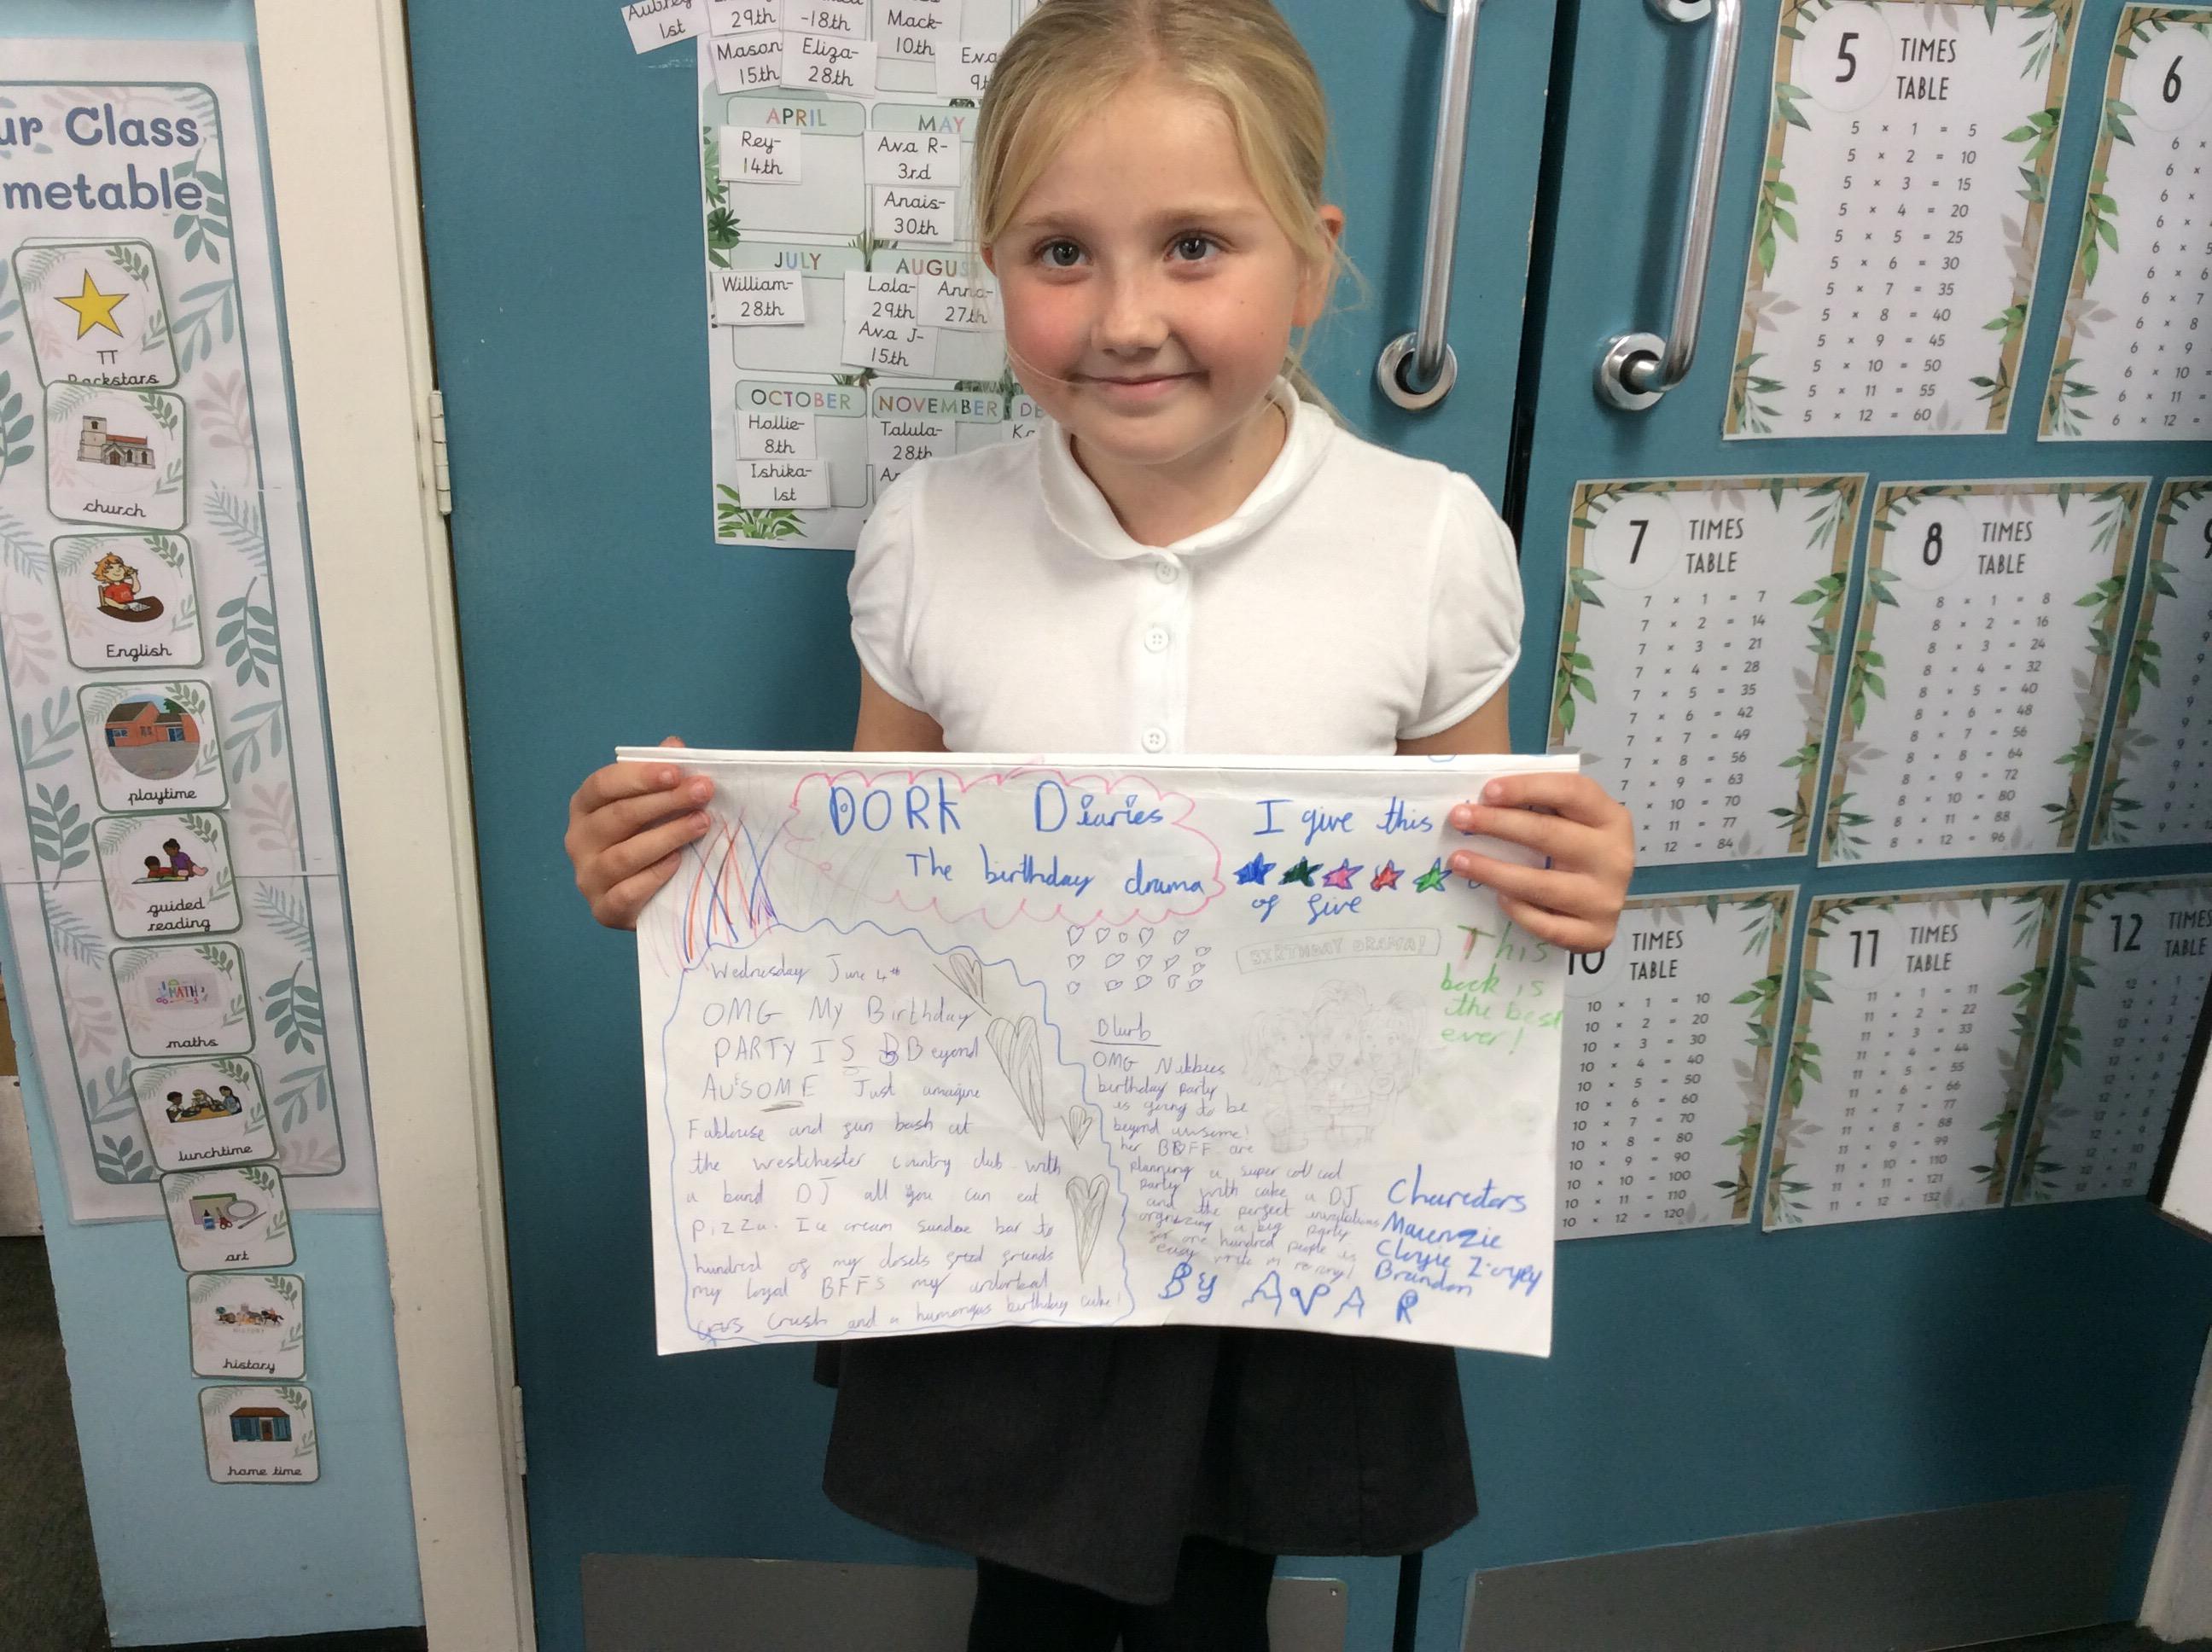 ur Class
metable
TT
Rockstars
church
English
playtime
guided
reading
maths
lunchtime
art
history
home time
Aubrey
1st
29th
-18th
Mack-
10th
Mason
15th
Eliza-
28th
Eva
9th
APRIL
MAY
Rey-
14th
Ava R-
3rd
Anais-
30th
JULY
AUGUS
William-
28th
Lola-
29th
Anna-
27th
Ava J-
15th
OCTOBER
NOVEMBER
DE
Hollie-
8th
Talula-
28th
Ishika-
1st
DORK Diaries
The birthday drama
I give this
of five
Wednesday June 4th
OMG My Birthday
PARTY IS BBeyond
AWSOME Just umagine
Fablouse and fun bash at
the westchester country club with
a band DJ all you can eat
pizza. Ice cream sundae bar to
hundred of my closets freed friends
my loyal BFFS my
crush and a humongus birthday cake!
BIRTHDAY DRAMA!
This
book is
the best
ever!
Blurb
OMG Nikkies
birthday party
is going to be
beyond awsome!
her BBFF are
planning a super cool
party with cake a DJ
and the perfect invitations
orgnizing a big party
for one hundred people is
easy
Charectors
Macenzie
Cloyie Zoyey
Brandon
By AVA R
5 TIMES
TABLE
5 × 1 = 5
5 × 2 = 10
5 × 3 = 15
5 × 4 = 20
5 × 5 = 25
5 × 6 = 30
5 × 7 = 35
5 × 8 = 40
5 × 9 = 45
5 × 10 = 50
5 × 11 = 55
5 × 12 = 60
6
6 ×
6 ×
6 ×
6 ×
6 × 5
6 × 6
6 × 7
6 × 8
6 × 9
6 × 10 =
6 × 11 =
6 × 12 =
7 TIMES
TABLE
7 × 1 = 7
7 × 2 = 14
7 × 3 = 21
7 × 4 = 28
7 × 5 = 35
7 × 6 = 42
7 × 7 = 49
7 × 8 = 56
7 × 9 = 63
× 10 = 70
× 11 = 77
× 12 = 84
8 TIMES
TABLE
8 × 1 = 8
8 × 2 = 16
8 × 3 = 24
8 × 4 = 32
8 × 5 = 40
8 × 6 = 48
8 × 7 = 56
8 × 8 = 64
8 × 9 = 72
8 × 10 = 80
8 × 11 = 88
8 × 12 = 96
10 TIMES
TABLE
10 × 1 = 10
10 × 2 = 20
10 × 3 = 30
10 × 4 = 40
10 × 5 = 50
10 × 6 = 60
10 × 7 = 70
10 × 8 = 80
10 × 9 = 90
10 × 10 = 100
10 × 11 = 110
10 × 12 = 120
11 TIMES
TABLE
11 × 1 = 11
11 × 2 = 22
11 × 3 = 33
11 × 4 = 44
11 × 5 = 55
11 × 6 = 66
11 × 7 = 77
11 × 8 = 88
11 × 9 = 99
11 × 10 = 110
11 × 11 = 121
11 × 12 = 132
12 TIMES
TABLE